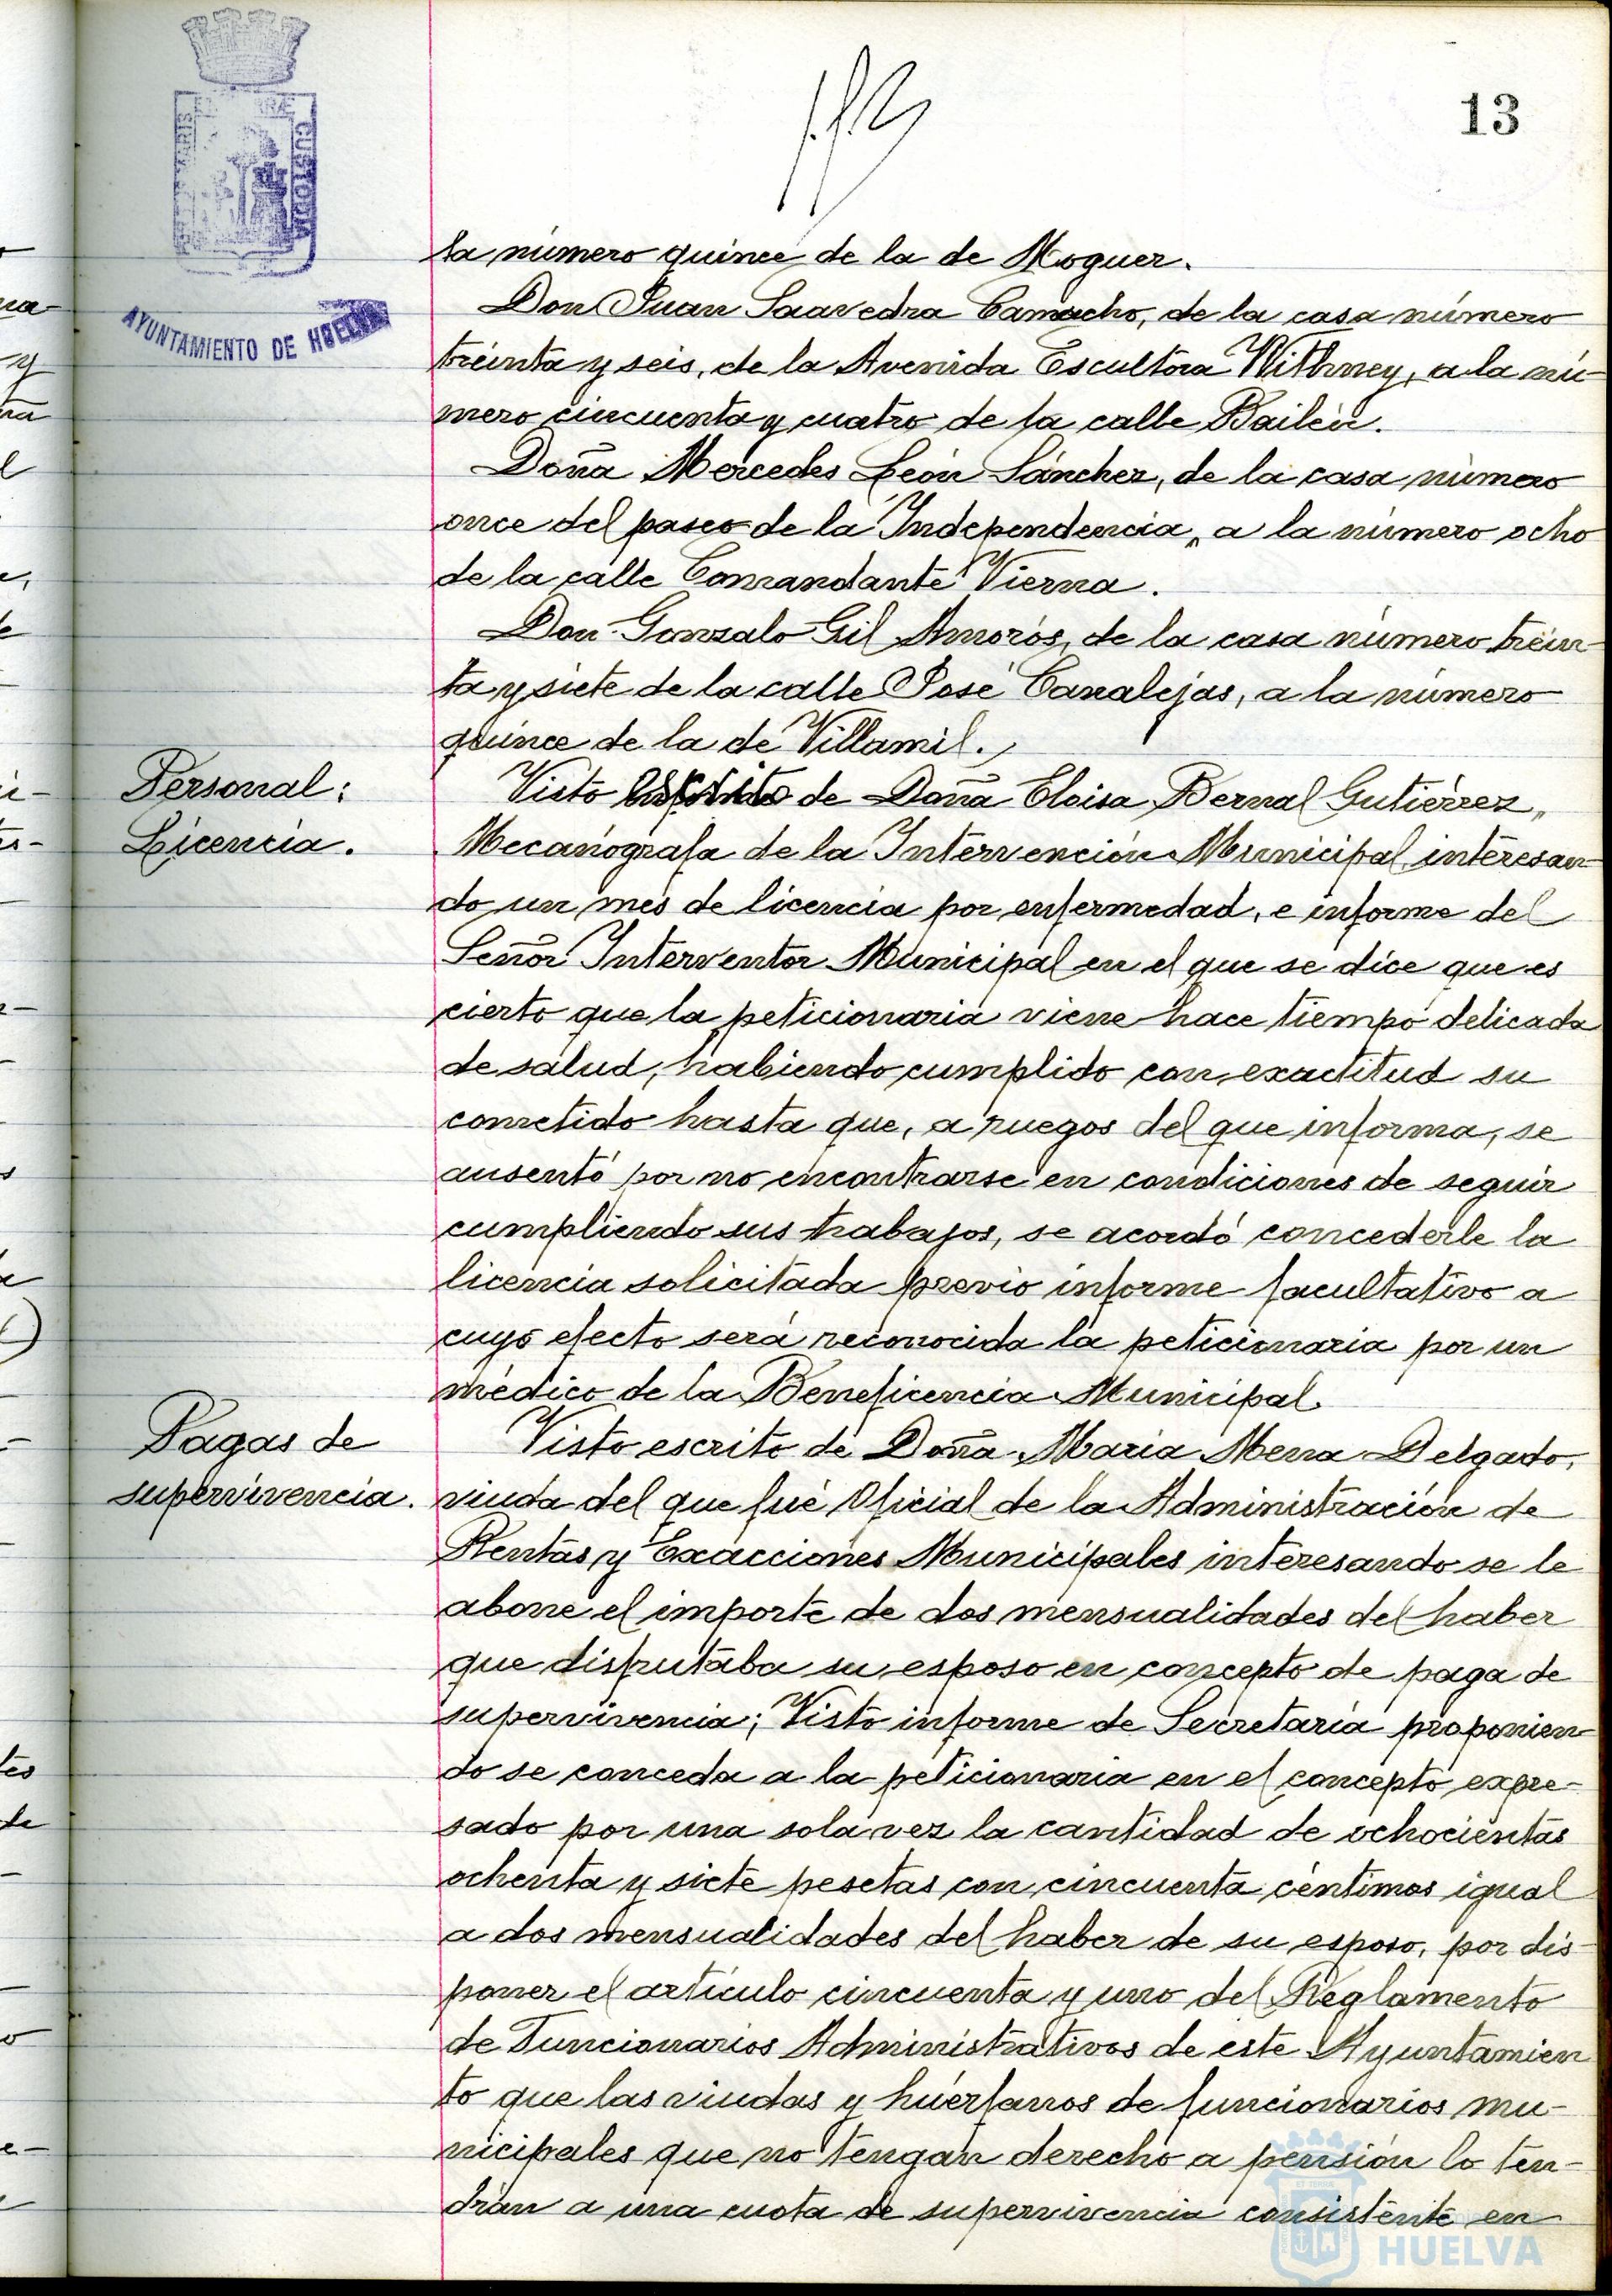 13
la número quince de la de Moguer.
Don Juan Saavedra Camacho, de la casa número
treinta y seis, de la Avenida Escultora Withney, a la nú-
mero cincuenta y cuatro de la calle Bailén.
Doña Mercedes León Sánchez, de la casa número
once del paseo de la Independencia, a la número ocho
de la calle Comandante Vierna.
Don Gonzalo Gil Amorós, de la casa número trein-
ta y siete de la calle José Canalejas, a la número
quince de la de Villamil.
Personal:
Licencia.
Visto escrito de Doña Eloisa Bernal Gutiérrez,
Mecanógrafa de la Intervención Municipal interesan-
do un mes de licencia por enfermedad, e informe del
Señor Interventor Municipal en el que se dice que es
cierto que la peticionaria viene hace tiempo delicada
de salud, habiendo cumplido con exactitud su
cometido hasta que, a ruegos del que informa, se
ausentó por no encontrarse en condiciones de seguir
cumpliendo sus trabajos, se acordó concederle la
licencia solicitada previo informe facultativo a
cuyo efecto será reconocida la peticionaria por un
médico de la Beneficencia Municipal.
Pagas de
supervivencia.
Visto escrito de Doña María Mena Delgado,
viuda del que fué Oficial de la Administración de
Rentas y Exacciones Municipales interesando se le
abone el importe de dos mensualidades del haber
que disfrutaba su esposo en concepto de paga de
supervivencia; Visto informe de Secretaría proponien-
do se conceda a la peticionaria en el concepto expre-
sado por una sola vez la cantidad de ochocientas
ochenta y siete pesetas con cincuenta céntimos igual
a dos mensualidades del haber de su esposo, por dis-
poner el artículo cincuenta y uno del Reglamento
de Funcionarios Administrativos de este Ayuntamien
to que las viudas y huérfanos de funcionarios mu-
nicipales que no tengan derecho a pensión lo ten-
drán a una cuota de supervivencia consistente en
AYUNTAMIENTO DE HUELVA
CUSTODIA
HUELVA